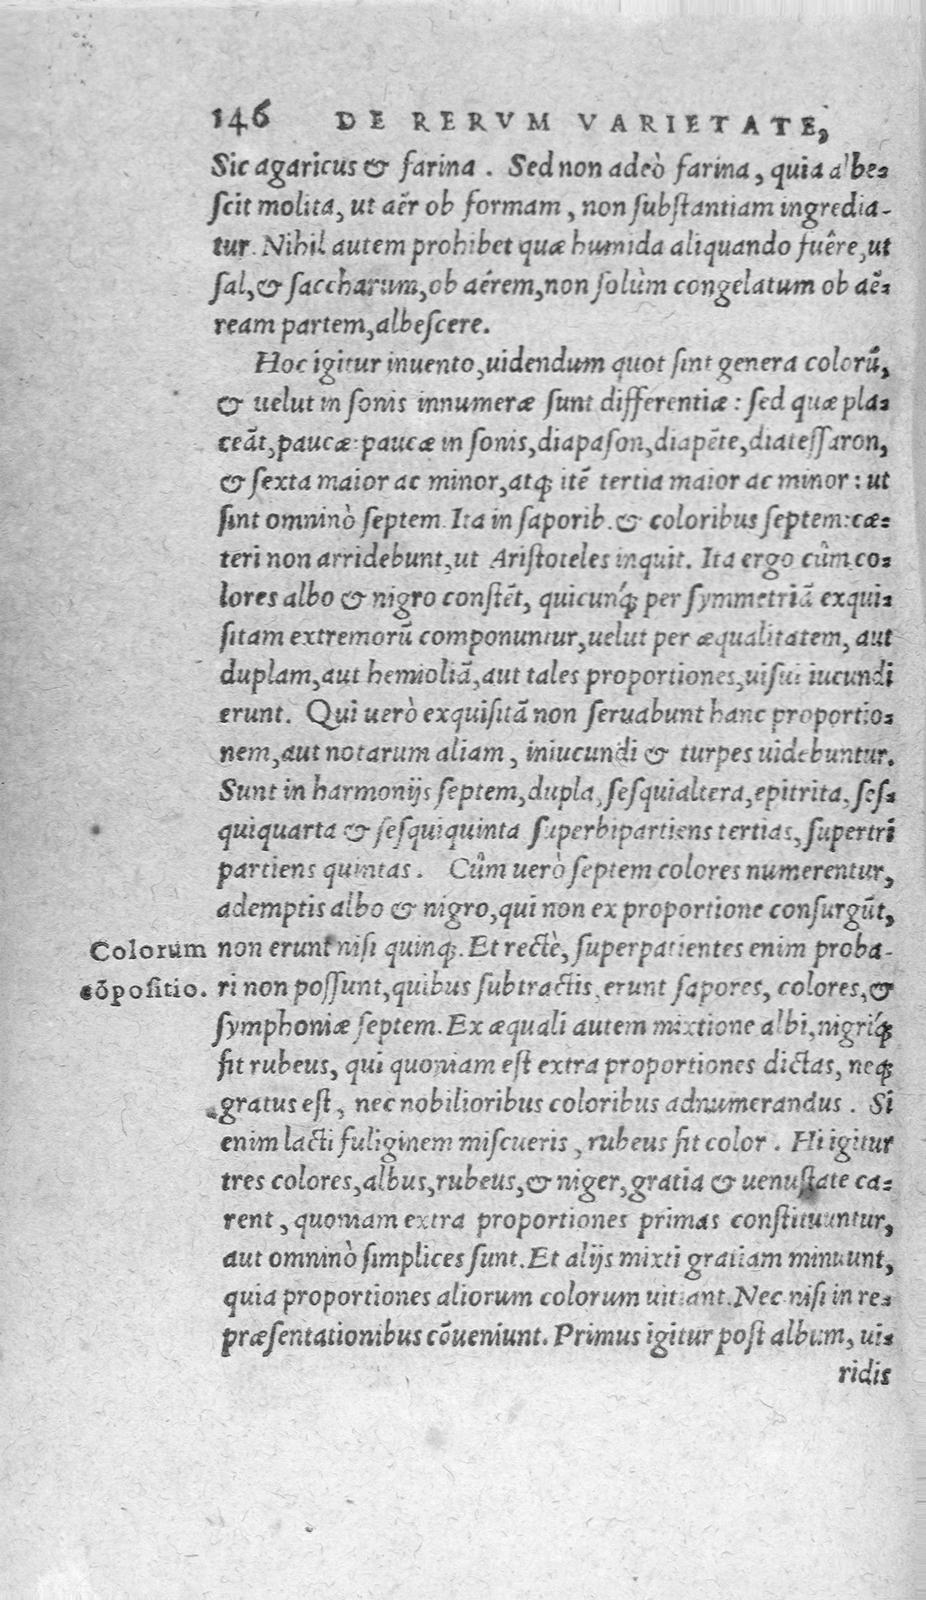 146 DE RERVM VARIETATE,
Sic agaricus & farina . Sed non adeò farina, quia albe-
ſcit molita, ut aër ob formam, non ſubſtantiam ingredia-
tur. Nihil autem prohibet quæ humida aliquando fuêre, ut
ſal, & ſaccharum, ob aërem, non ſolùm congelatum ob aë-
ream partem, albeſcere.
Hoc igitur inuento, uidendum quot ſint genera colorũ,
& uelut in ſonis innumeræ ſunt differentiæ : ſed quæ pla-
ceãt, paucæ: paucæ in ſonis, diapaſon, diapẽte, diateſſaron,
& ſexta maior ac minor, atq́; itẽ tertia maior ac minor : ut
ſint omninò ſeptem. Ita in ſaporib. & coloribus ſeptem: cæ-
teri non arridebunt, ut Ariſtoteles inquit. Ita ergo cûm co-
lores albo & nigro conſtẽt, quicunq́; per ſymmetriã exqui-
ſitam extremorũ componuntur, uelut per æqualitatem, aut
duplam, aut hemioliã, aut tales proportiones, uiſui iucundi
erunt. Qui uerò exquiſitã non ſeruabunt hanc proportio-
nem, aut notarum aliam, iniucundi & turpes uidebuntur.
Sunt in harmonijs ſeptem, dupla, ſeſquialtera, epitrita, ſeſ-
quiquarta & ſeſquiquinta ſuperbipartiens tertias, ſupertri
partiens quintas. Cûm uerò ſeptem colores numerentur,
ademptis albo & nigro, qui non ex proportione conſurgũt,
Colorum
cõpoſitio.
non erunt niſi quinq́;. Et rectè, ſuperpatientes enim proba-
ri non poſſunt, quibus ſubtractis, erunt ſapores, colores, &
ſymphoniæ ſeptem. Ex æquali autem mixtione albi, nigriq́;
fit rubeus, qui quoniam eſt extra proportiones dictas, neq́;
gratus eſt, nec nobilioribus coloribus adnumerandus. Si
enim lacti fuliginem miſcueris, rubeus fit color. Hi igitur
tres colores, albus, rubeus, & niger, gratia & uenuſtate ca-
rent, quoniam extra proportiones primas conſtituuntur,
aut omninò ſimplices ſunt. Et alijs mixti gratiam minuunt,
quia proportiones aliorum colorum uitiant. Nec niſi in re-
præſentationibus cõueniunt. Primus igitur poſt album, ui-
ridis